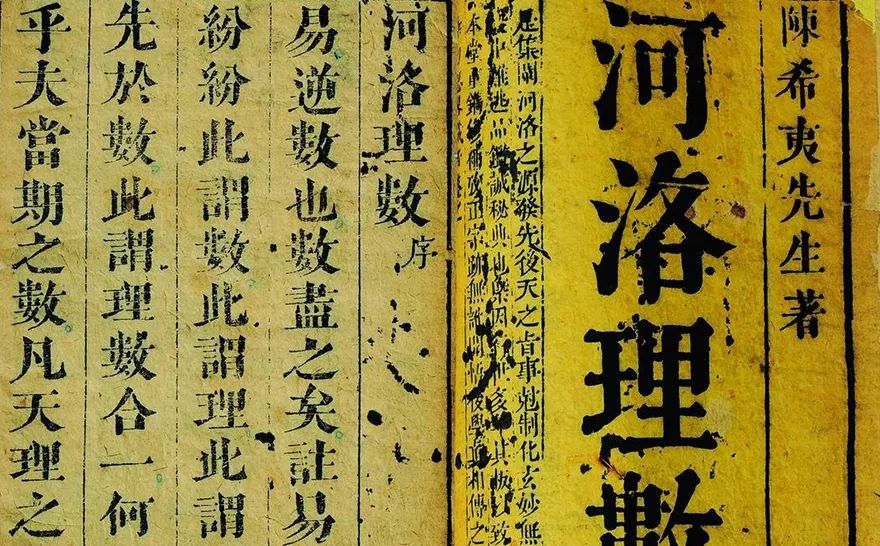 陳希夷先生著
河洛理數
是集闡河洛之源發先後天之旨事尅制化玄妙無
秘典也
河洛理數序
易逆數也數盡之矣註易
紛紛此謂數此謂理此謂
先於數此謂理數合一何
乎夫當期之數凡天理之